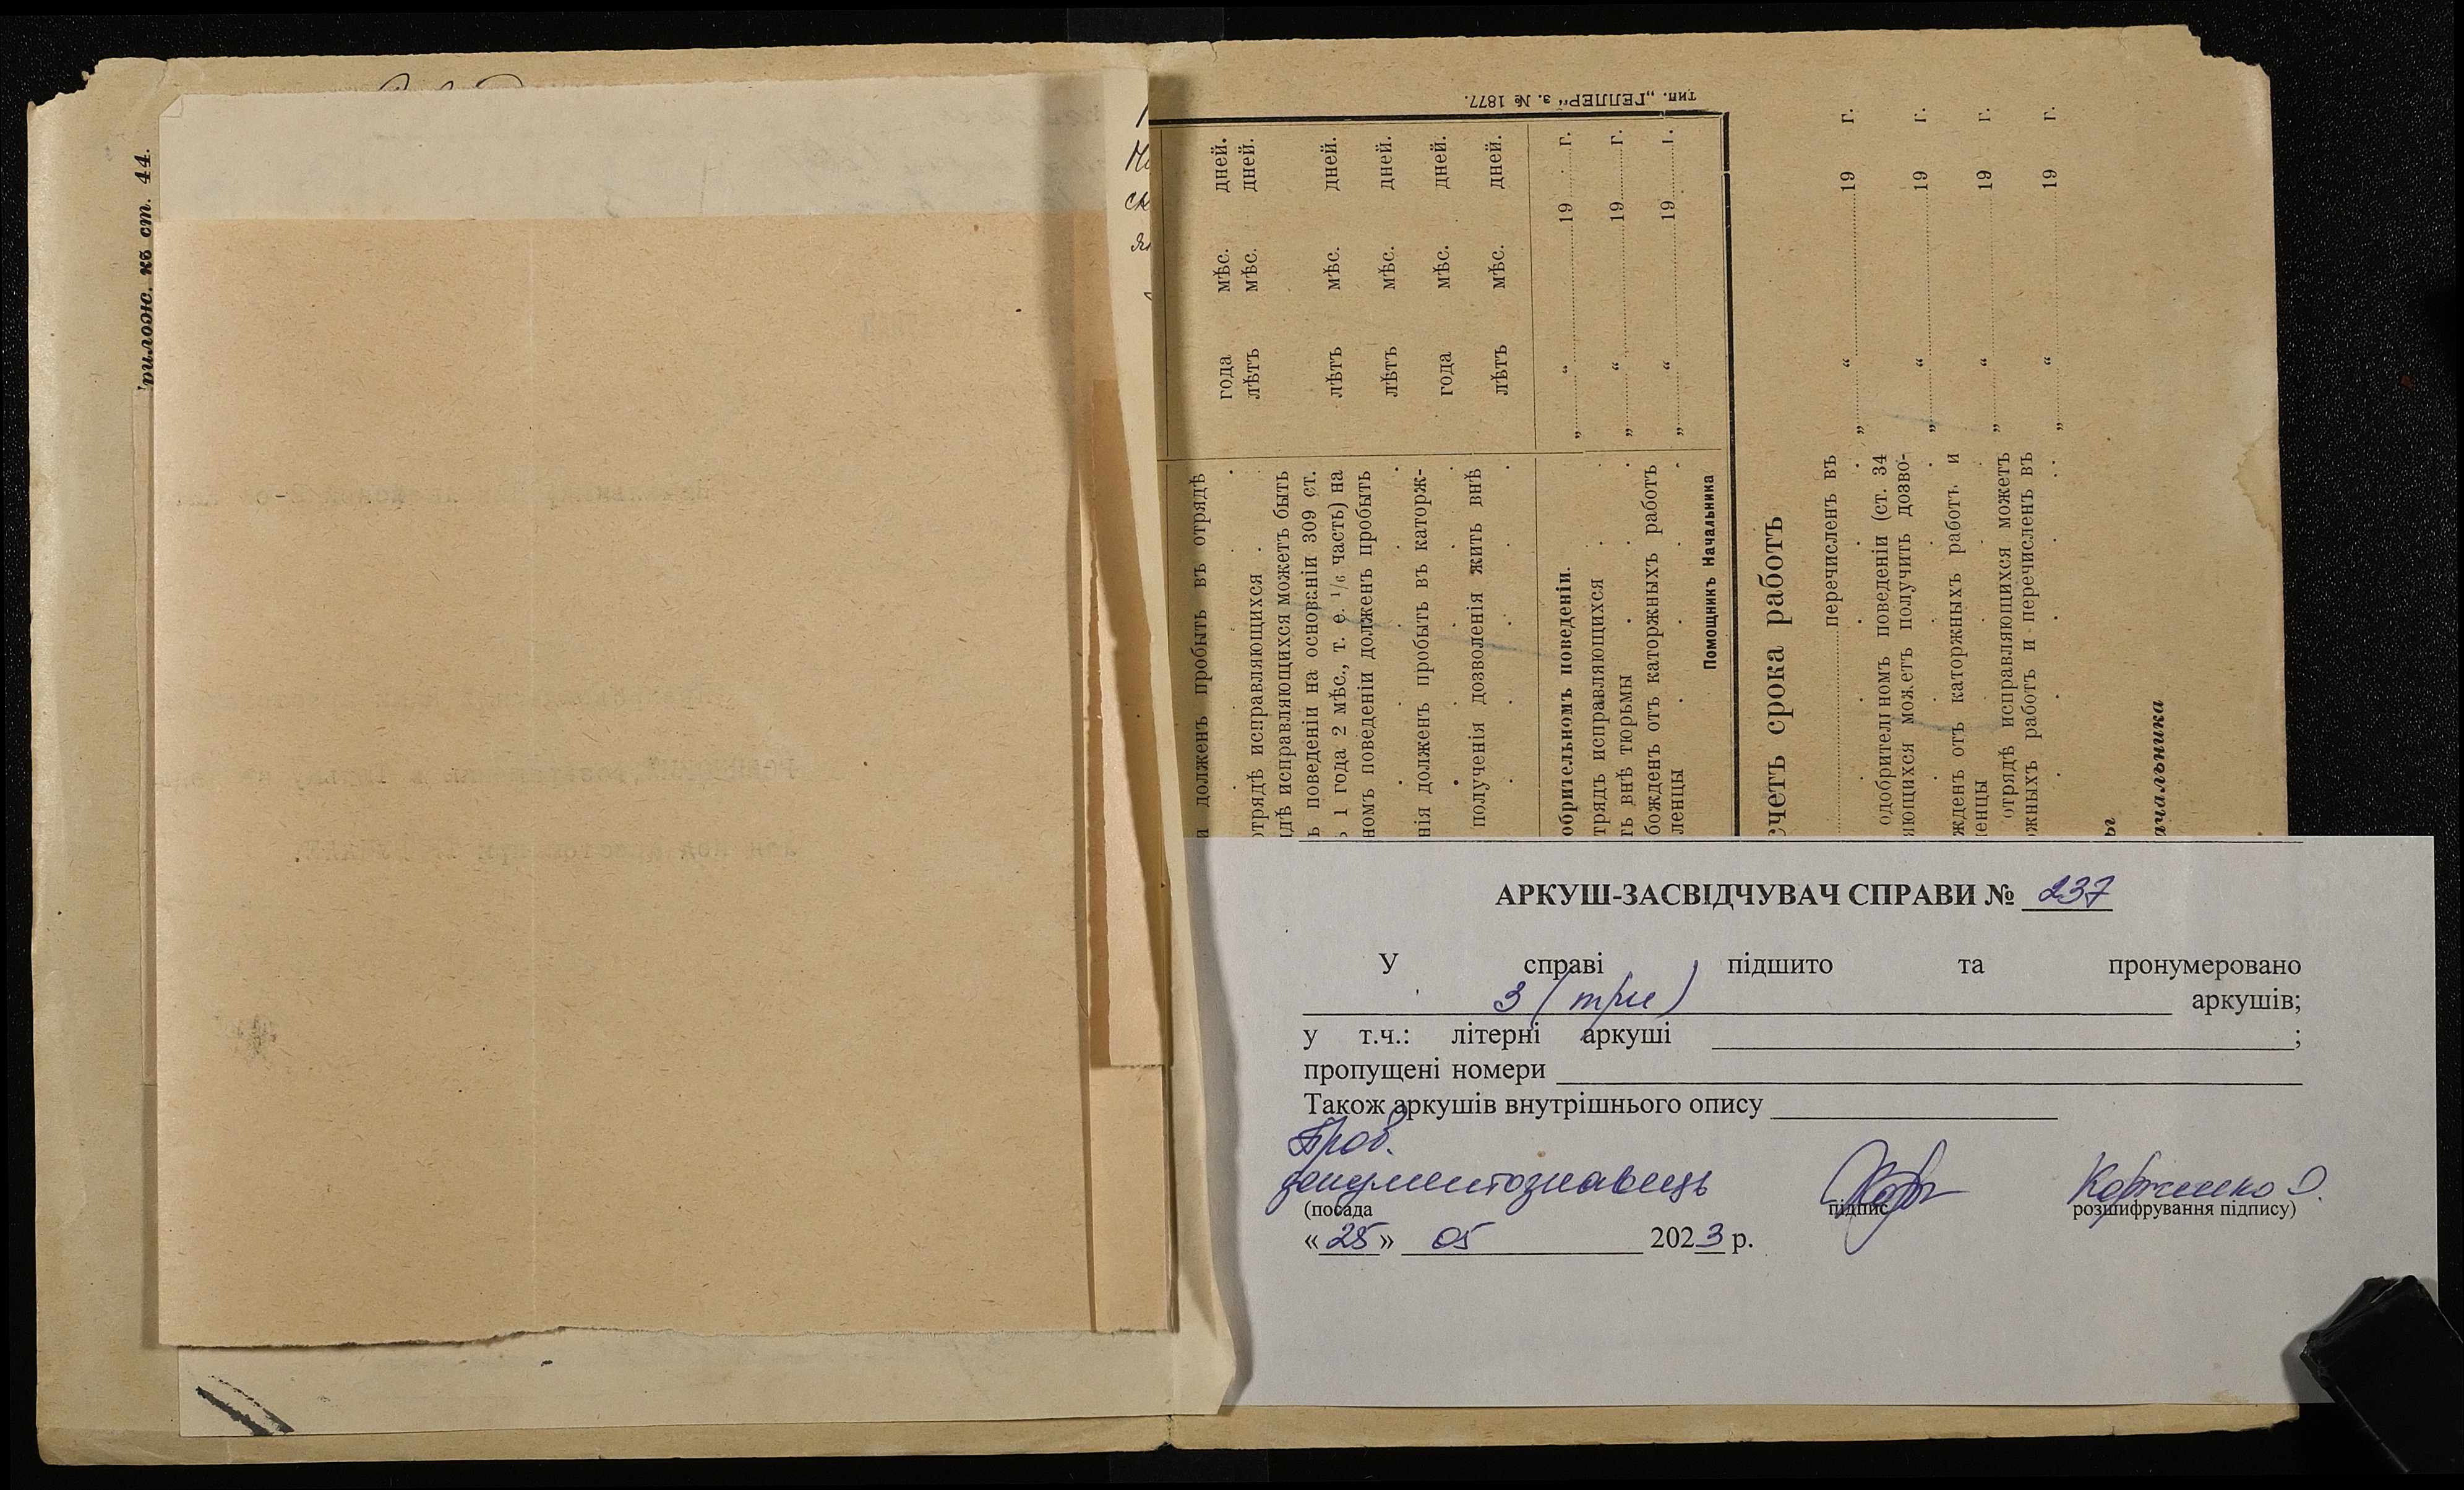 Приложс. къ ст. 44.
тип. „ГЕЛЛЕРЪ“ з. № 1877.
должен пробыть въ отрядѣ
года мѣс. дней.
отрядѣ исправляющихся . лѣтъ мѣс. дней.
дѣ исправляющихся можетъ быть
поведеніи на основаніи 309 ст.
1 года 2 мѣс., т. е. 1/6 часть) на лѣтъ мѣс. дней.
номъ поведеніи долженъ пробыть
лѣтъ мѣс. дней.
нія долженъ пробыть въ каторж-
года мѣс. дней.
полученія дозволенія жить внѣ
лѣтъ мѣс. дней.
обрительномъ поведеніи. „ “ 19 г.
трядъ исправляющихся
ть внѣ тюрьмы „ “ 19 г.
божденъ отъ каторжныхъ работъ
ленцы „ “ 19 г.
Помощникъ Начальника
счетъ срока работъ
перечисленъ въ
„ “ 19 г.
одобрительномъ поведеніи (ст. 34
яющихся можетъ получить дозво-
„ “ 19 г.
жденъ отъ каторжныхъ работъ и
ленцы „ “ 19 г.
отрядѣ исправляющихся можетъ
жныхъ работъ и перечисленъ въ
„ “ 19 г.
ы
ачальника
АРКУШ-ЗАСВІДЧУВАЧ СПРАВИ № 237
У справі підшито та пронумеровано
3 (три) аркушів;
у т.ч.: літерні аркуші ;
пропущені номери
Також аркушів внутрішнього опису
Пров.
документознавець
(посада підпис розшифрування підпису)
«25» 05 2023 р.